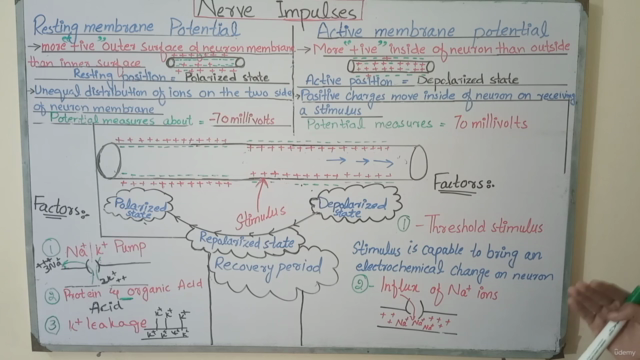 Nerve Impulses
Resting membrane Potential
→more "+ive" outer surface of neuron membrane
than inner surface
Resting position = Polarized state
→Unequal distribution of ions on the two side
of neuron membrane
Potential measures about = -70 millivolts
Active membrane potential
→More "+ive" inside of neuron than outside
Active position = Depolarized state
→Positive charges move inside of neuron on receiving
a stimulus
Potential measures = 70 millivolts
Stimulus
Polarized
state
Depolarized
state
Repolarized state
Recovery period
Factors:-
① Na⁺/K⁺ Pump
3Na⁺
② Protein & organic Acid
Acid
③ K⁺ leakage
K⁺ K⁺ K⁺
K⁺ K⁺ K⁺
Factors:-
① - Threshold stimulus
Stimulus is capable to bring an
electrochemical change on neuron
② - Influx of Na⁺ ions
Na⁺ Na⁺ Na⁺
udemy